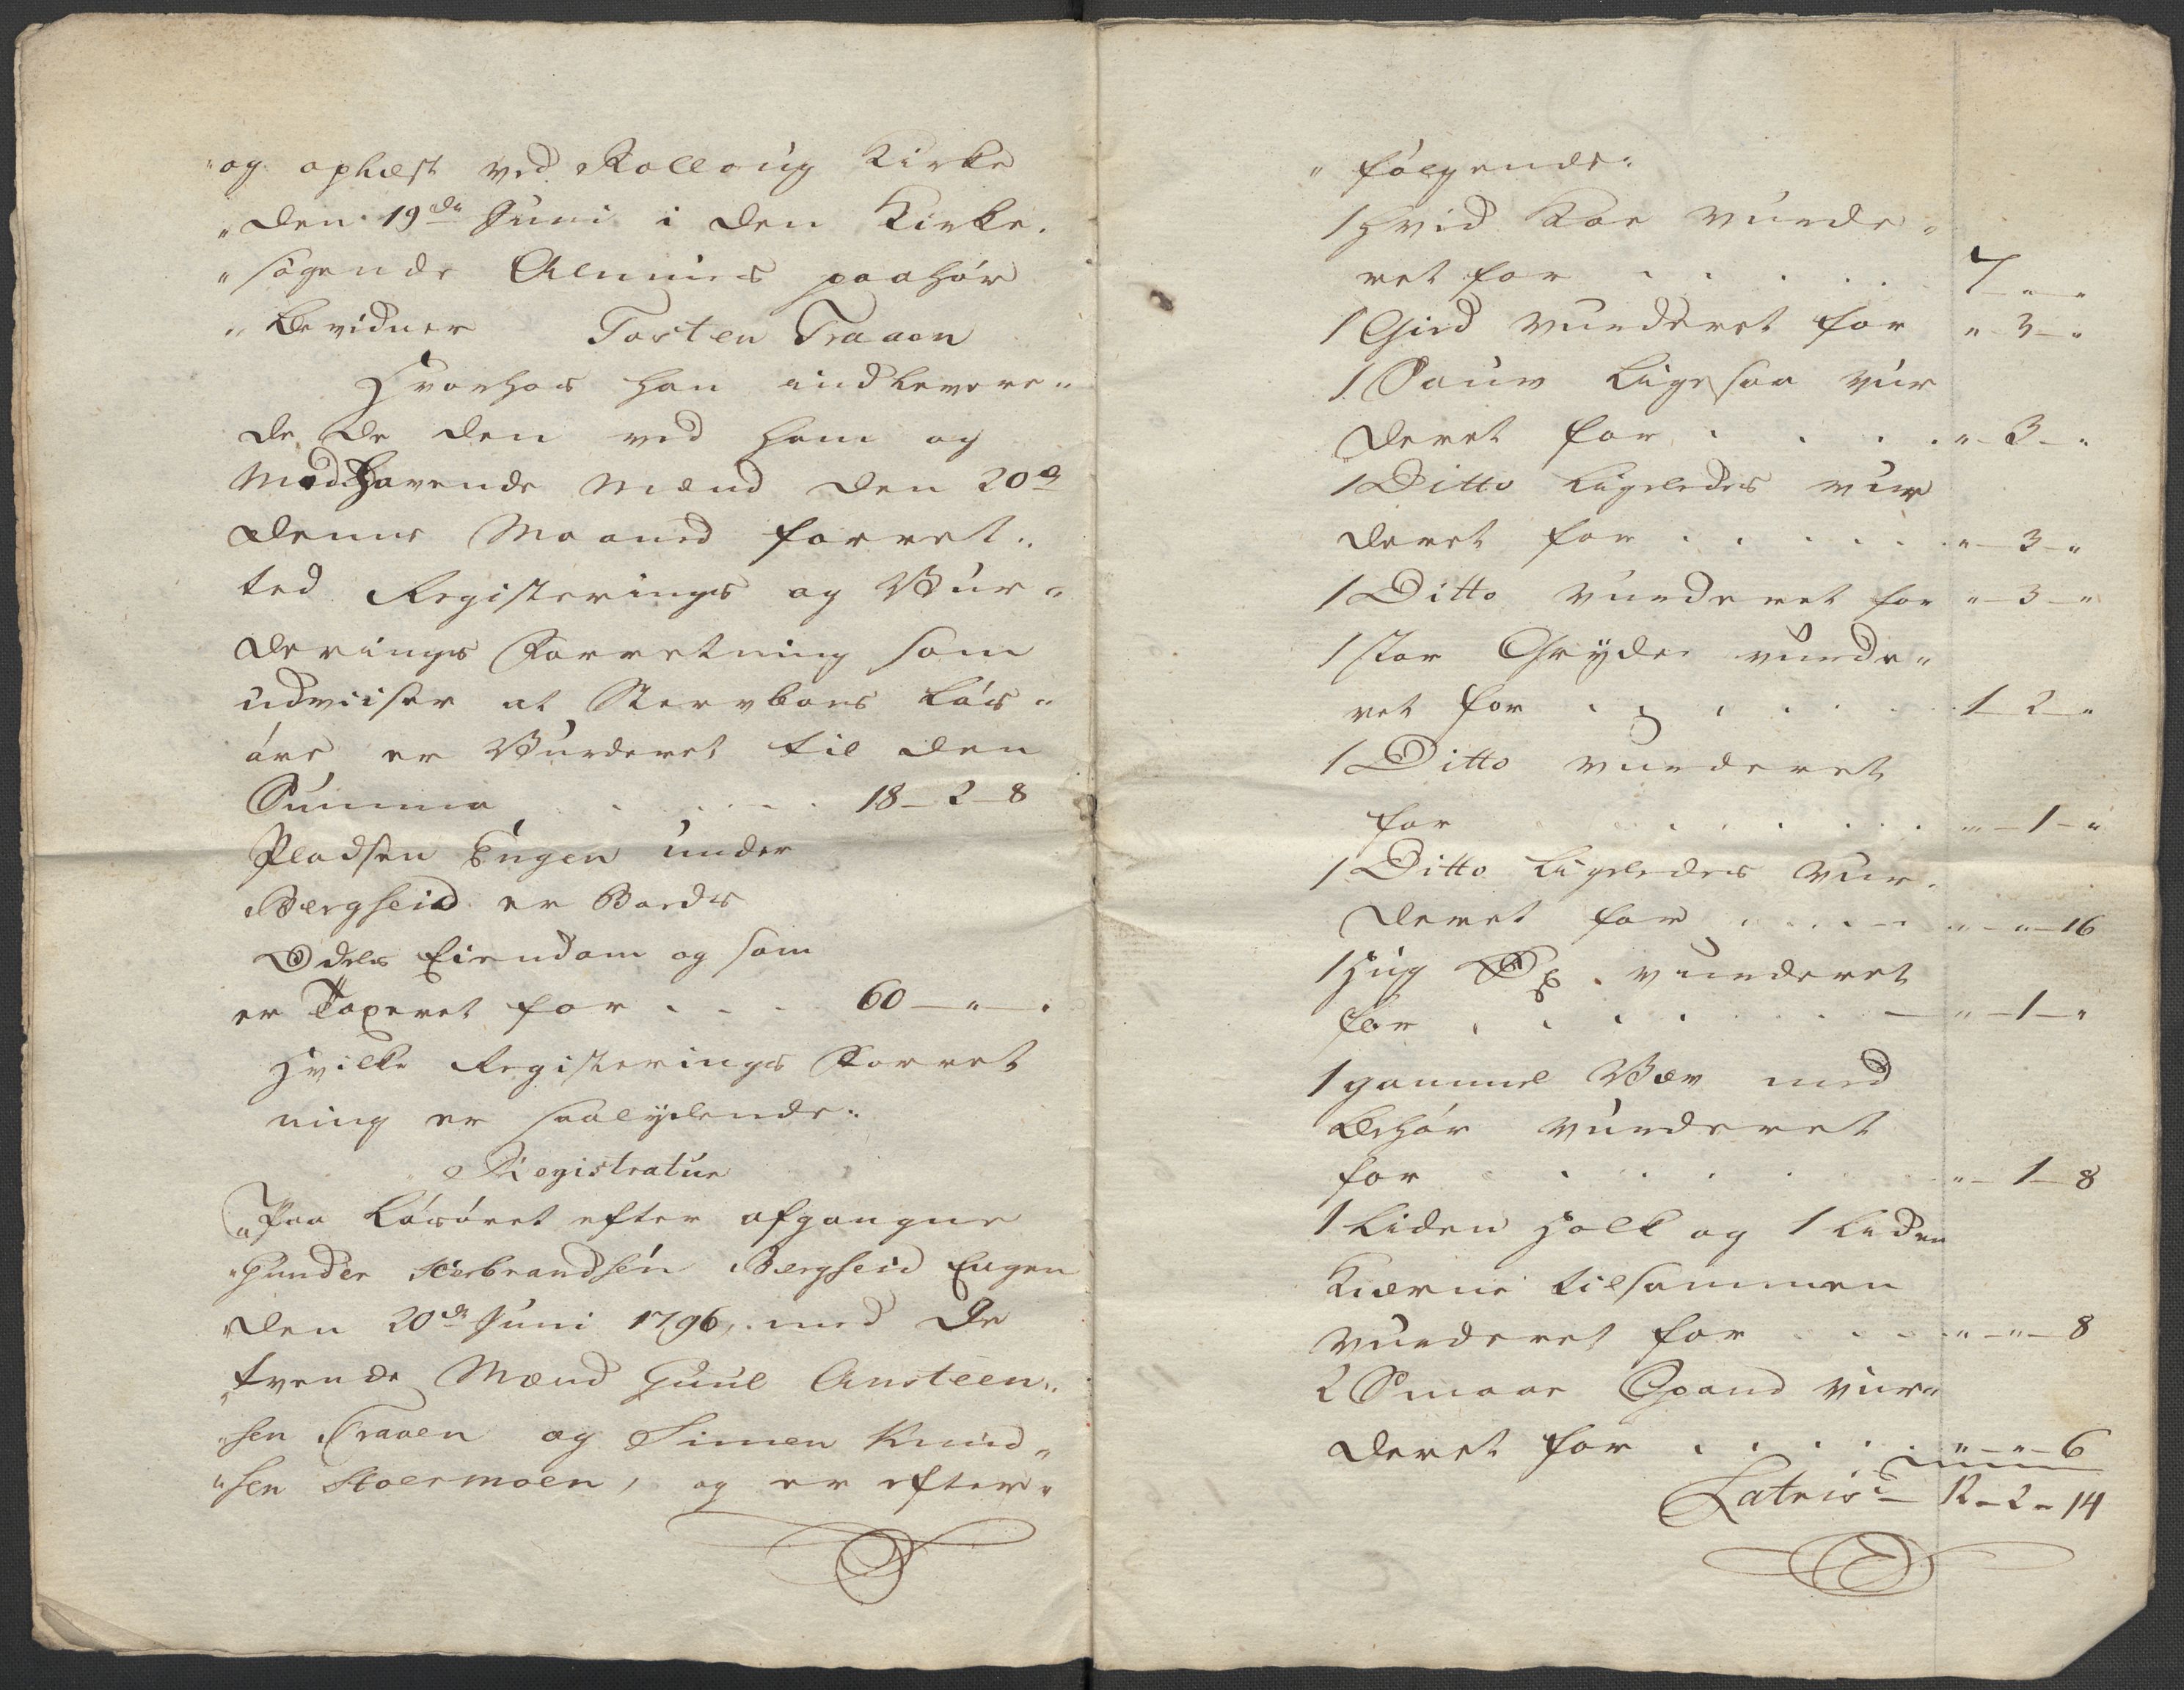 "og oplæst ved Rolloug Kirke
"den 19de Juni i den Kirke-
"søgende Almues paahør
"bevidner Tosten Traaen
Hvorhos han indlevere"
de de den ved ham og
Medhavende Mænd den 20de
denne Maaned forret"
ted Registerings og Vur"
derings Forretning som
udviiser at Stervboens Løs"
øre er Vurderet til den
Summa . . . . . 18 - 2 - 8
Pladsen Engen under
Bergseid er Boedes
Odels Eiendom og som
er Taxeret for . . . 60 - " - "
Hvilke Registerings Forret
ning er saalydende:
Registratur
"Paa Løsøret efter afgangne
"Gunder Herbrandsen Bergseid Engen
"den 20de Juni 1796, med de
"tvende Mænd Guul Ansteen"
"sen Traaen og Simen Knud"
"sen Stoermoen, og er efter"
" følgende:
1 hvid Koe Vurde"
ret for . . . . . 7 - " - "
1 Gied vurderet for " - 3 - "
1 Sauv ligesaa vur
deret for . . . . " - 3 - "
1 Ditto ligeledes vur
deret for . . . . . " - 3 - "
1 Ditto vurderet for " - 3 - "
1 stor Gryde vurde"
ret for . . . . . 1 - 2 - "
1 Ditto vurderet
for . . . . . . " - 1 - "
1 Ditto ligeledes Vur"
deret for . . . . . " - " - 16
1 Hug Øx vurderet
for . . . . . " - 1 - "
1 gammel Væv med
behør vurderet
for . . . . " - 1 - 8
1 liden Holk og 1 liden
Kiærne tilsammen
vurderet for . . . " - " - 8
2 Smaae Spand vur"
deret for . . . . . " - " - 6
Lateris 12 - 2 - 14